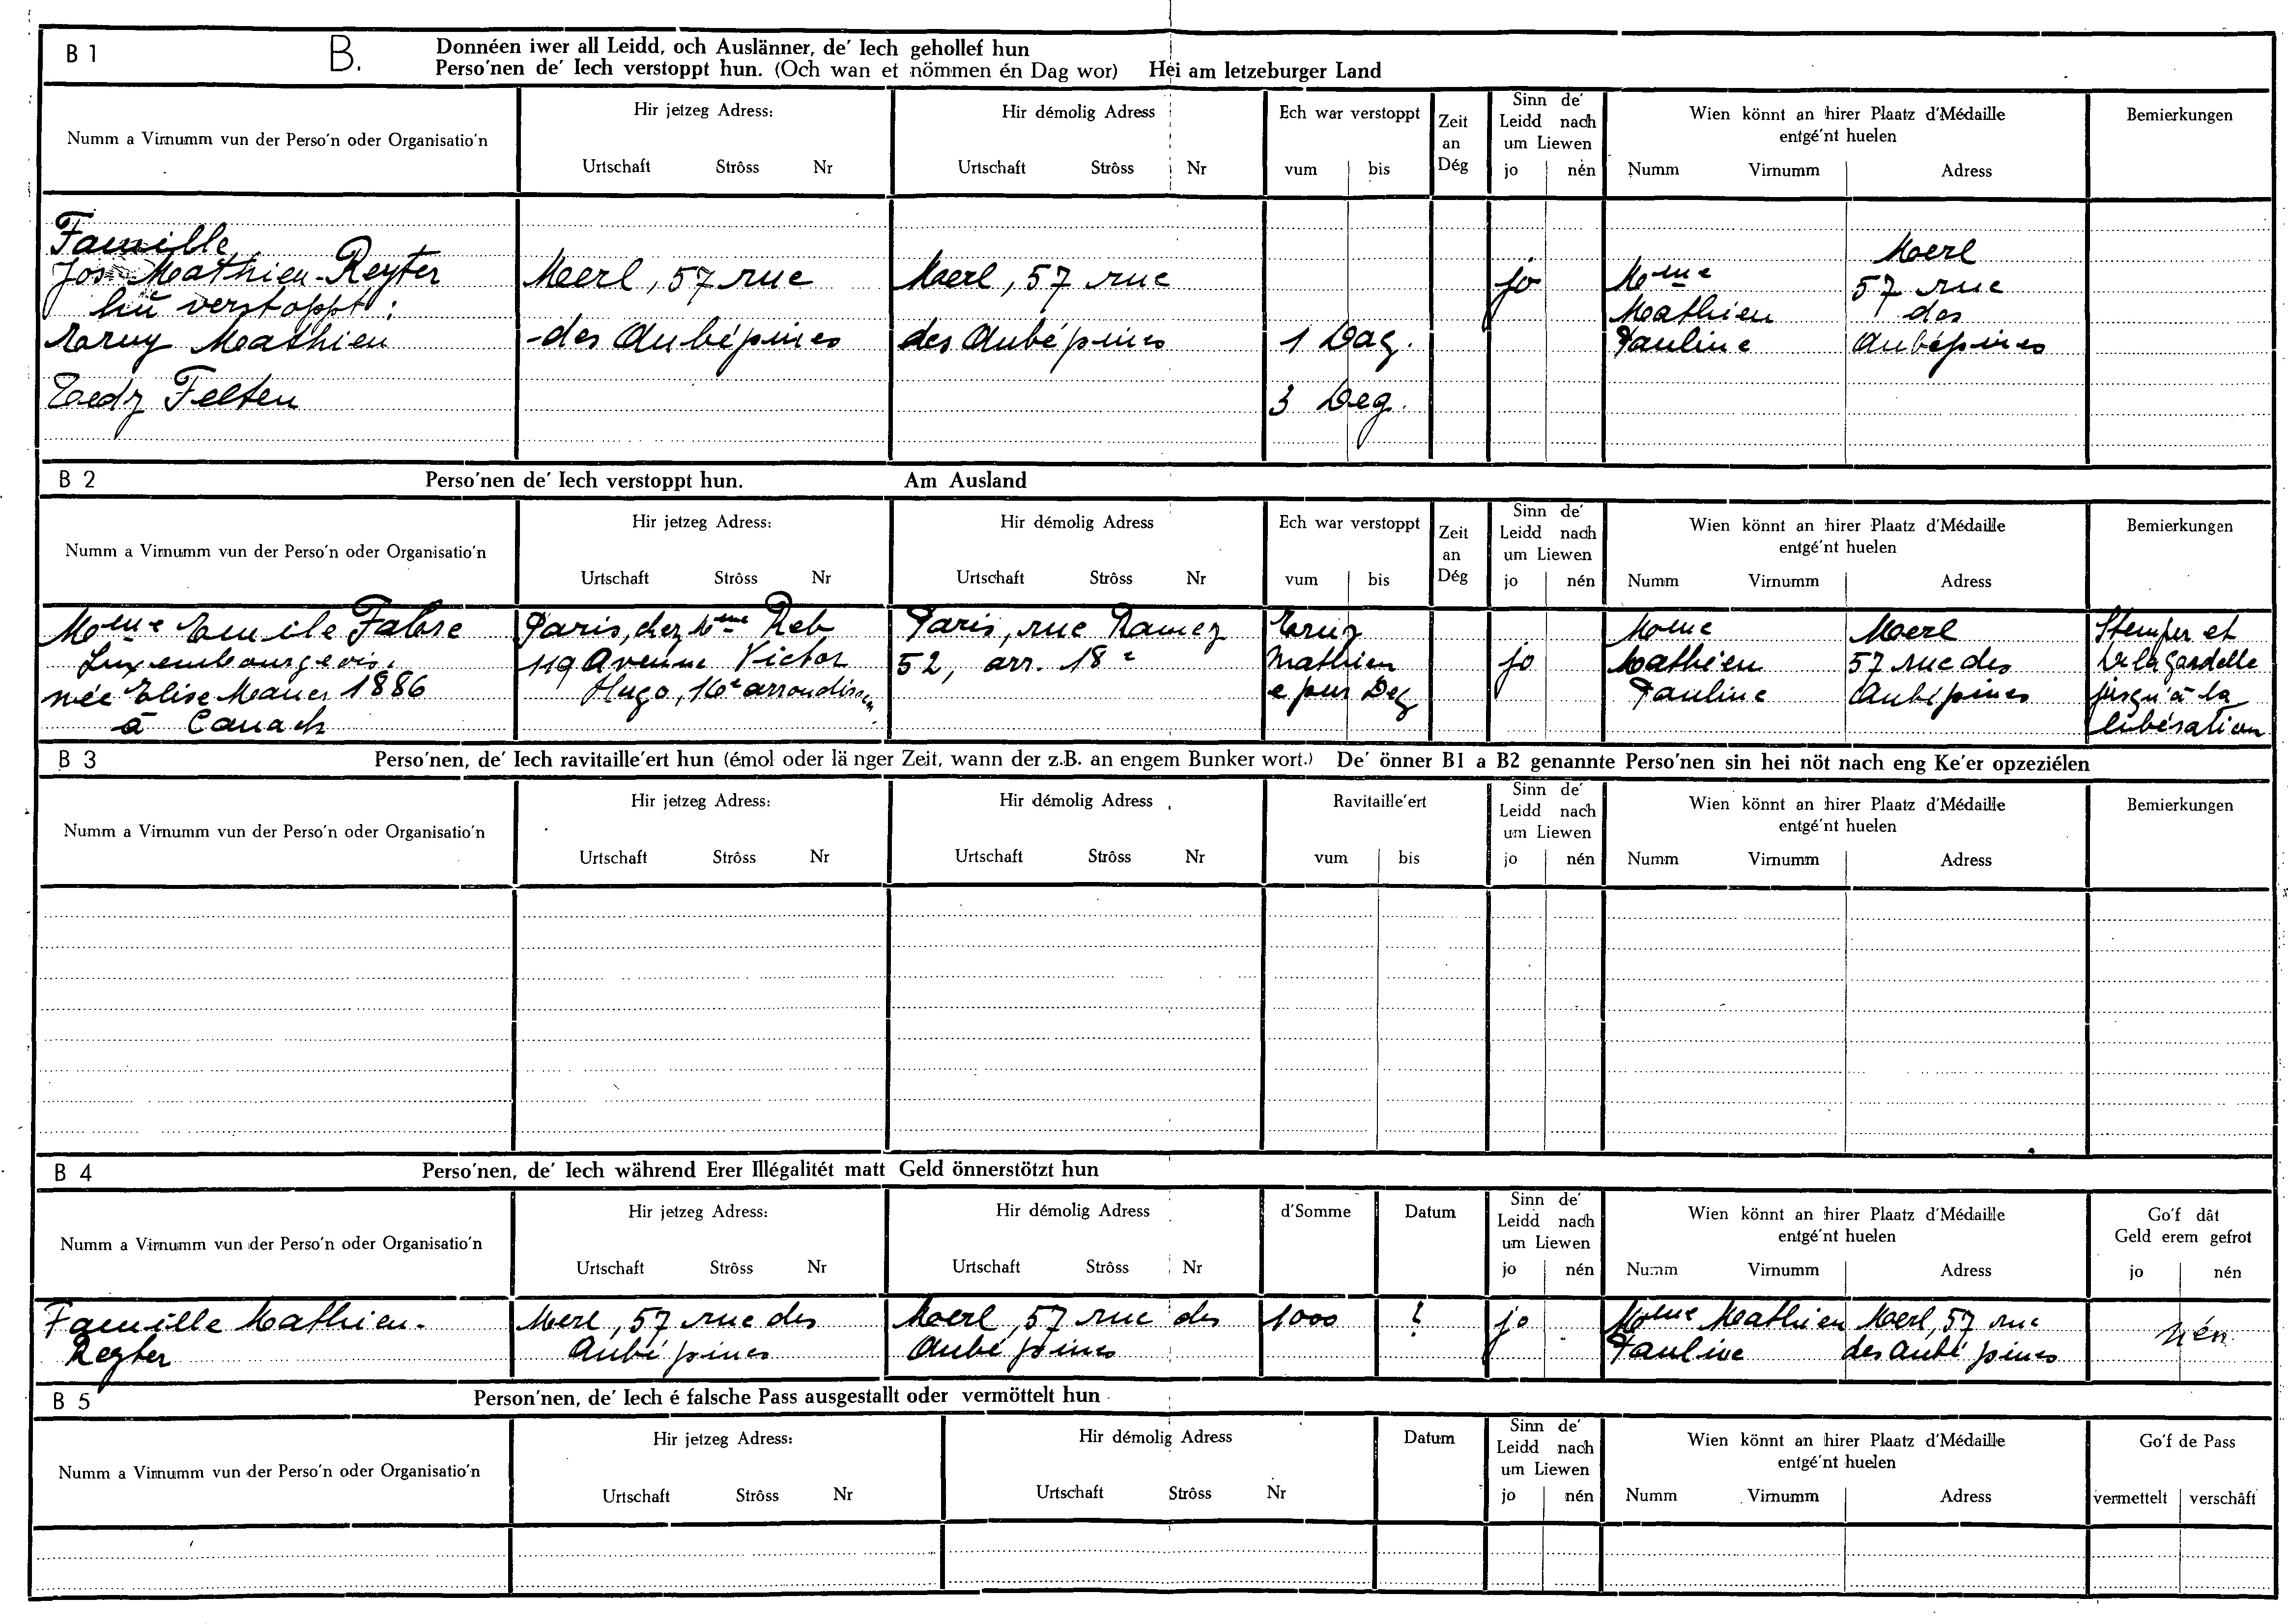 B 1
B.
Donnéen iwer all Leidd, och Auslänner, de' Iech gehollef hun
Perso'nen de' Iech verstoppt hun. (Och wan et nömmen én Dag wor) Hei am letzeburger Land
Numm a Virnumm vun der Perso'n oder Organisatio'n
Hir jetzeg Adress:
Urtschaft Strôss Nr
Hir démolig Adress
Urtschaft Strôss Nr
Ech war verstoppt
vum bis
Zeit
an
Dég
Sinn de'
Leidd nach
um Liewen
jo nén
Wien könnt an hirer Plaatz d'Médaille
entgé'nt huelen
Numm Virnumm Adress
Bemierkungen
Famille
Jos Mathieu-Reyter
hu verstoppt:
Mathieu
Felten
Merl, 57 rue
des Aubépines
Merl, 57 rue
des Aubépines
1 Dag.
3 Deg.
jo
Mme
Mathieu
Pauline
Merl
57 rue
des
Aubépines
B 2
Perso'nen de' Iech verstoppt hun. Am Ausland
Numm a Virnumm vun der Perso'n oder Organisatio'n
Hir jetzeg Adress:
Urtschaft Strôss Nr
Hir démolig Adress
Urtschaft Strôss Nr
Ech war verstoppt
vum bis
Zeit
an
Dég
Sinn de'
Leidd nach
um Liewen
jo nén
Wien könnt an hirer Plaatz d'Médaille
entgé'nt huelen
Numm Virnumm Adress
Bemierkungen
Mme Emile Fabre
Luxembourgeoise
née Elise Maues 1886
à Canach
Paris, chez Mme Reb
119 Avenue Victor
Hugo, 16e
Paris, rue Ramey
52, arr. 18e
Mathieu
e puer Deg
jo
Mme
Mathieu
Pauline
Merl
57 rue des
Aubépines
et
jusqu'à la
libération
B 3
Perso'nen, de' Iech ravitaille'ert hun (émol oder länger Zeit, wann der z.B. an engem Bunker wort.) De' önner B1 a B2 genannte Perso'nen sin hei nöt nach eng Ke'er opzeziélen
Numm a Virnumm vun der Perso'n oder Organisatio'n
Hir jetzeg Adress:
Urtschaft Strôss Nr
Hir démolig Adress
Urtschaft Strôss Nr
Ravitaille'ert
vum bis
Sinn de'
Leidd nach
um Liewen
jo nén
Wien könnt an hirer Plaatz d'Médaille
entgé'nt huelen
Numm Virnumm Adress
Bemierkungen
B 4
Perso'nen, de' Iech während Erer Illégalitét matt Geld önnerstötzt hun
Numm a Virnumm vun der Perso'n oder Organisatio'n
Hir jetzeg Adress:
Urtschaft Strôss Nr
Hir démolig Adress
Urtschaft Strôss Nr
d'Somme
Datum
Sinn de'
Leidd nach
um Liewen
jo nén
Wien könnt an hirer Plaatz d'Médaille
entgé'nt huelen
Numm Virnumm Adress
Go'f dât
Geld erem gefrot
jo nén
Famille Mathieu-
Reyter
Merl, 57 rue des
Aubépines
Merl, 57 rue des
Aubépines
1000
?
jo
Mme Mathieu
Pauline
Merl, 57 rue
des Aubépines
nén
B 5
Person'nen, de' Iech é falsche Pass ausgestallt oder vermöttelt hun
Numm a Virnumm vun der Perso'n oder Organisatio'n
Hir jetzeg Adress:
Urtschaft Strôss Nr
Hir démolig Adress
Urtschaft Strôss Nr
Datum
Sinn de'
Leidd nach
um Liewen
jo nén
Wien könnt an hirer Plaatz d'Médaille
entgé'nt huelen
Numm Virnumm Adress
Go'f de Pass
vermettelt verschâft